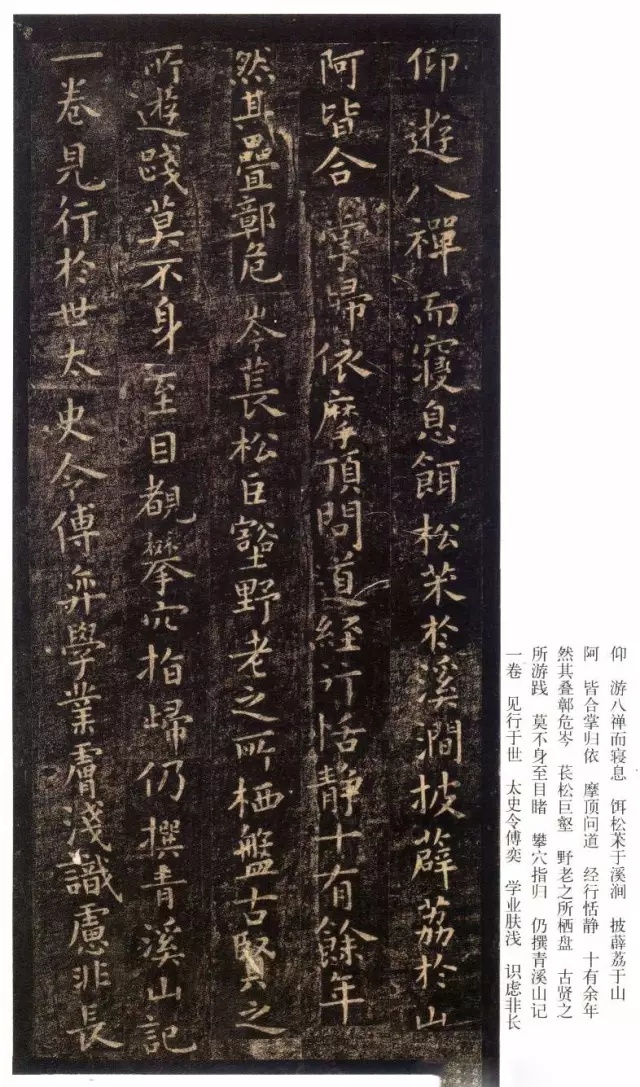 仰遊八禪而寢息餌松朮於溪澗披薜荔於山
阿皆合掌歸依摩頂問道經行恬静十有餘年
然其疊鄣危岑萇松巨壑野老之所栖盤古賢之
所遊踐莫不身至目覩攀穴指歸仍撰青溪山記
一卷見行於世太史令傅弈學業膚淺識慮非長
仰 游八禅而寝息 饵松茉于溪涧 披薜荔于山
阿 皆合掌归依 摩顶问道 经行恬静 十有余年
然其叠鄣危岑 苌松巨壑 野老之所栖盘 古贤之
所游践 莫不身至目睹 攀穴指归 仍撰青溪山记
一卷 见行于世 太史令傅奕 学业肤浅 识虑非长